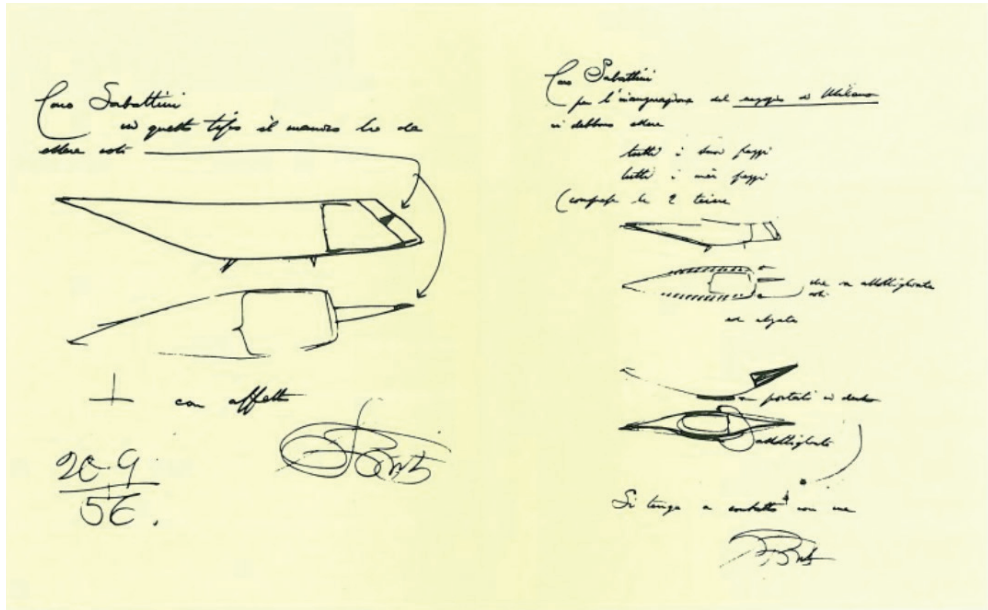 Caro Sabattini
in questo tipo il manico ha da
essere così
con affetto
20.9
56.
Caro Sabattini
per l'inaugurazione del negozio di Milano
vi debbono essere
tutti i suoi pezzi
tutti i miei pezzi
(comprese le 2 teiere
che va assottigliata
così
ed alzata
portati
assottigliata
Si tenga a contatto con me